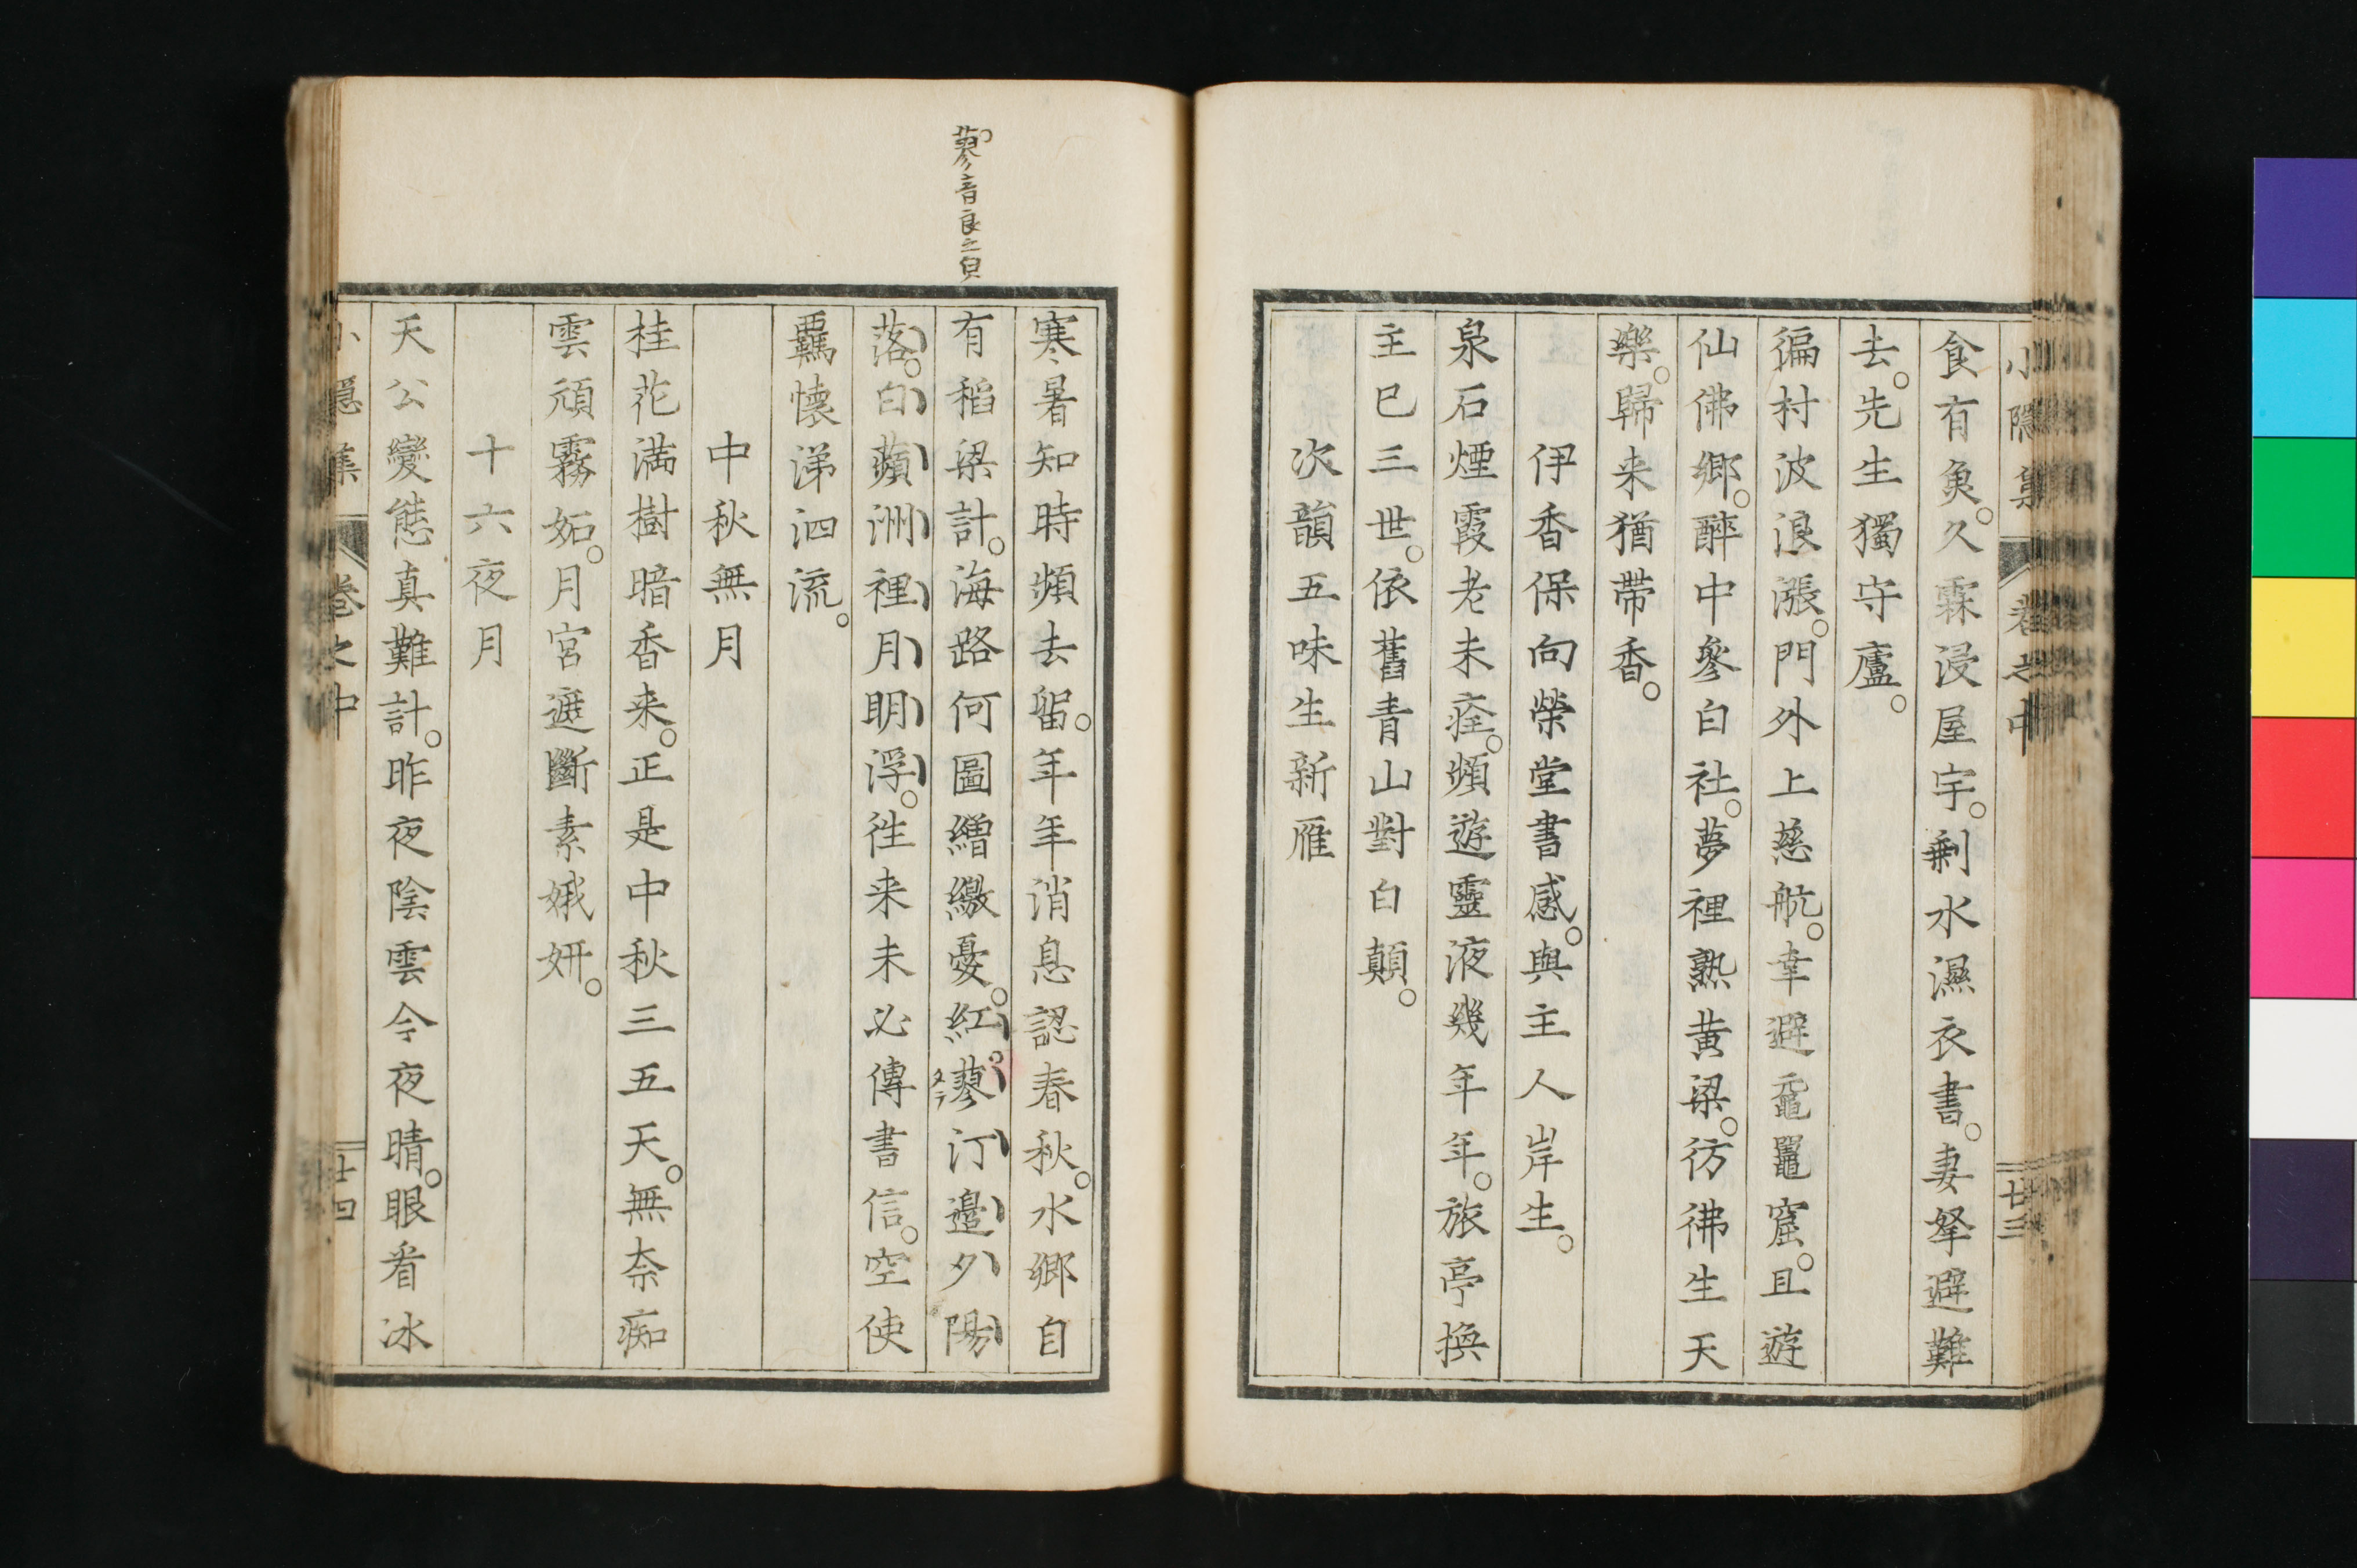 小隱集 卷之中 廿三
食有魚。久霖浸屋宇。剩水濕衣書。妻孥避難
去。先生獨守廬。
徧村波浪漲。門外上慈航。幸避黿鼉窟。且遊
仙佛鄉。醉中參白社。夢裡熟黃梁。彷彿生天
樂。歸来猶帶香。
伊香保向榮堂書感。與主人岸生。
泉石煙霞老未痊。頻遊靈液幾年年。旅亭換
主已三世。依舊青山對白顛。
次韻五味生新雁
蓼音良之皃
寒暑知時頻去留。年年消息認春秋。水鄉自
有稻梁計。海路何圖繒繳憂。紅蓼汀邉夕陽
落。白蘋洲裡月明浮。往来未必傳書信。空使
羈懷涕泗流。
中秋無月
桂花満樹暗香来。正是中秋三五天。無奈痴
雲頑霧妬。月宮遮斷素娥妍。
十六夜月
天公變態真難計。昨夜陰雲今夜晴。眼看冰
小隱集 卷之中 廿四